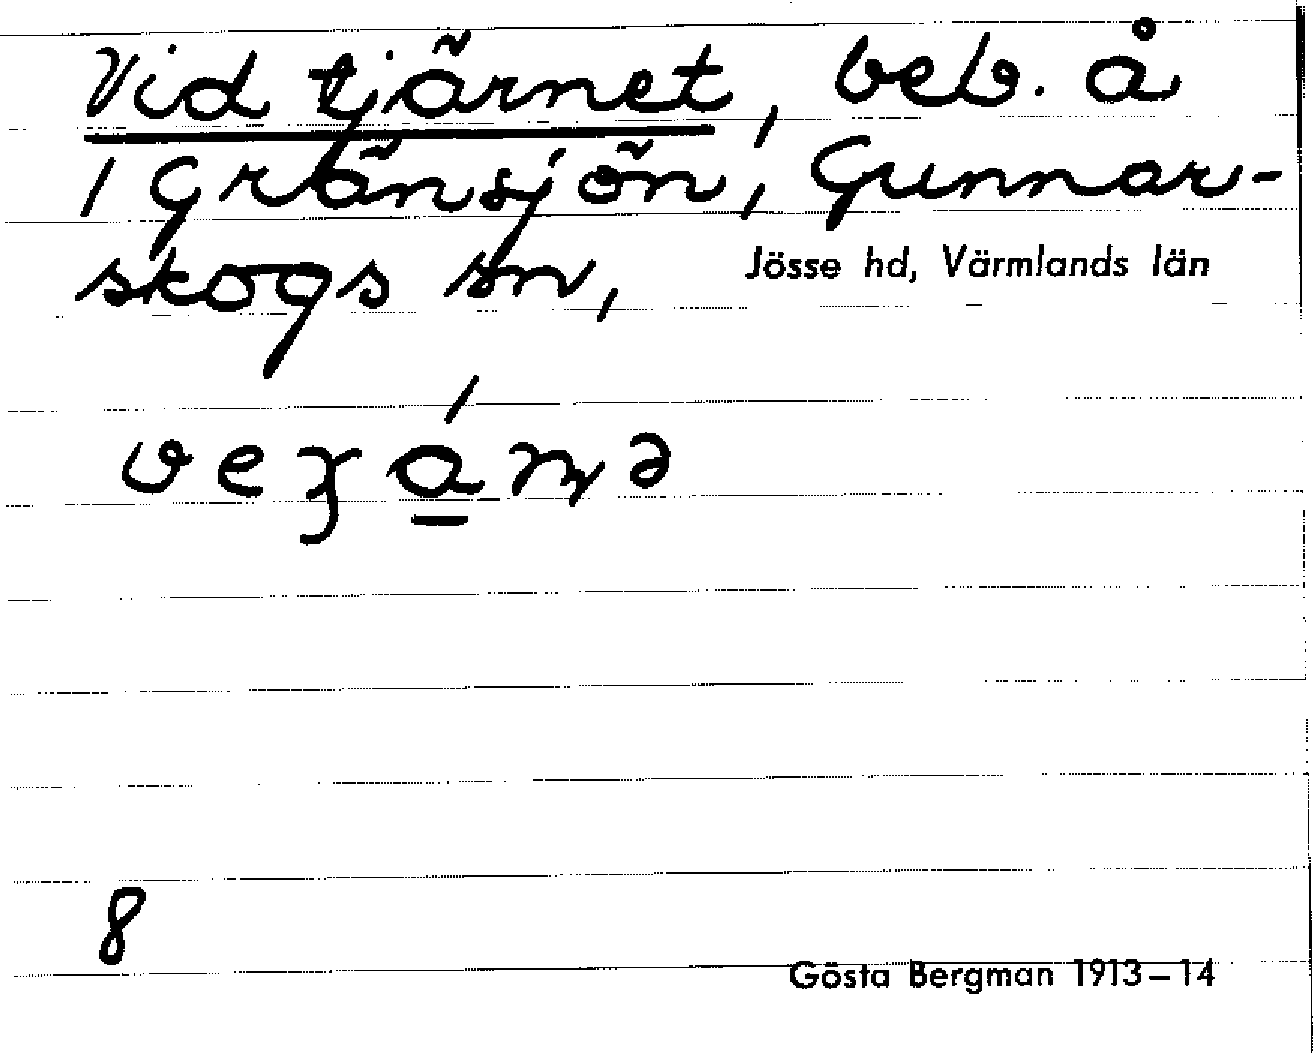 Vid tjärnet, beb. å
/ Gränsjön, Gunnar-
skogs sn, Jösse hd, Värmlands län
8
Gösta Bergman 1913–14